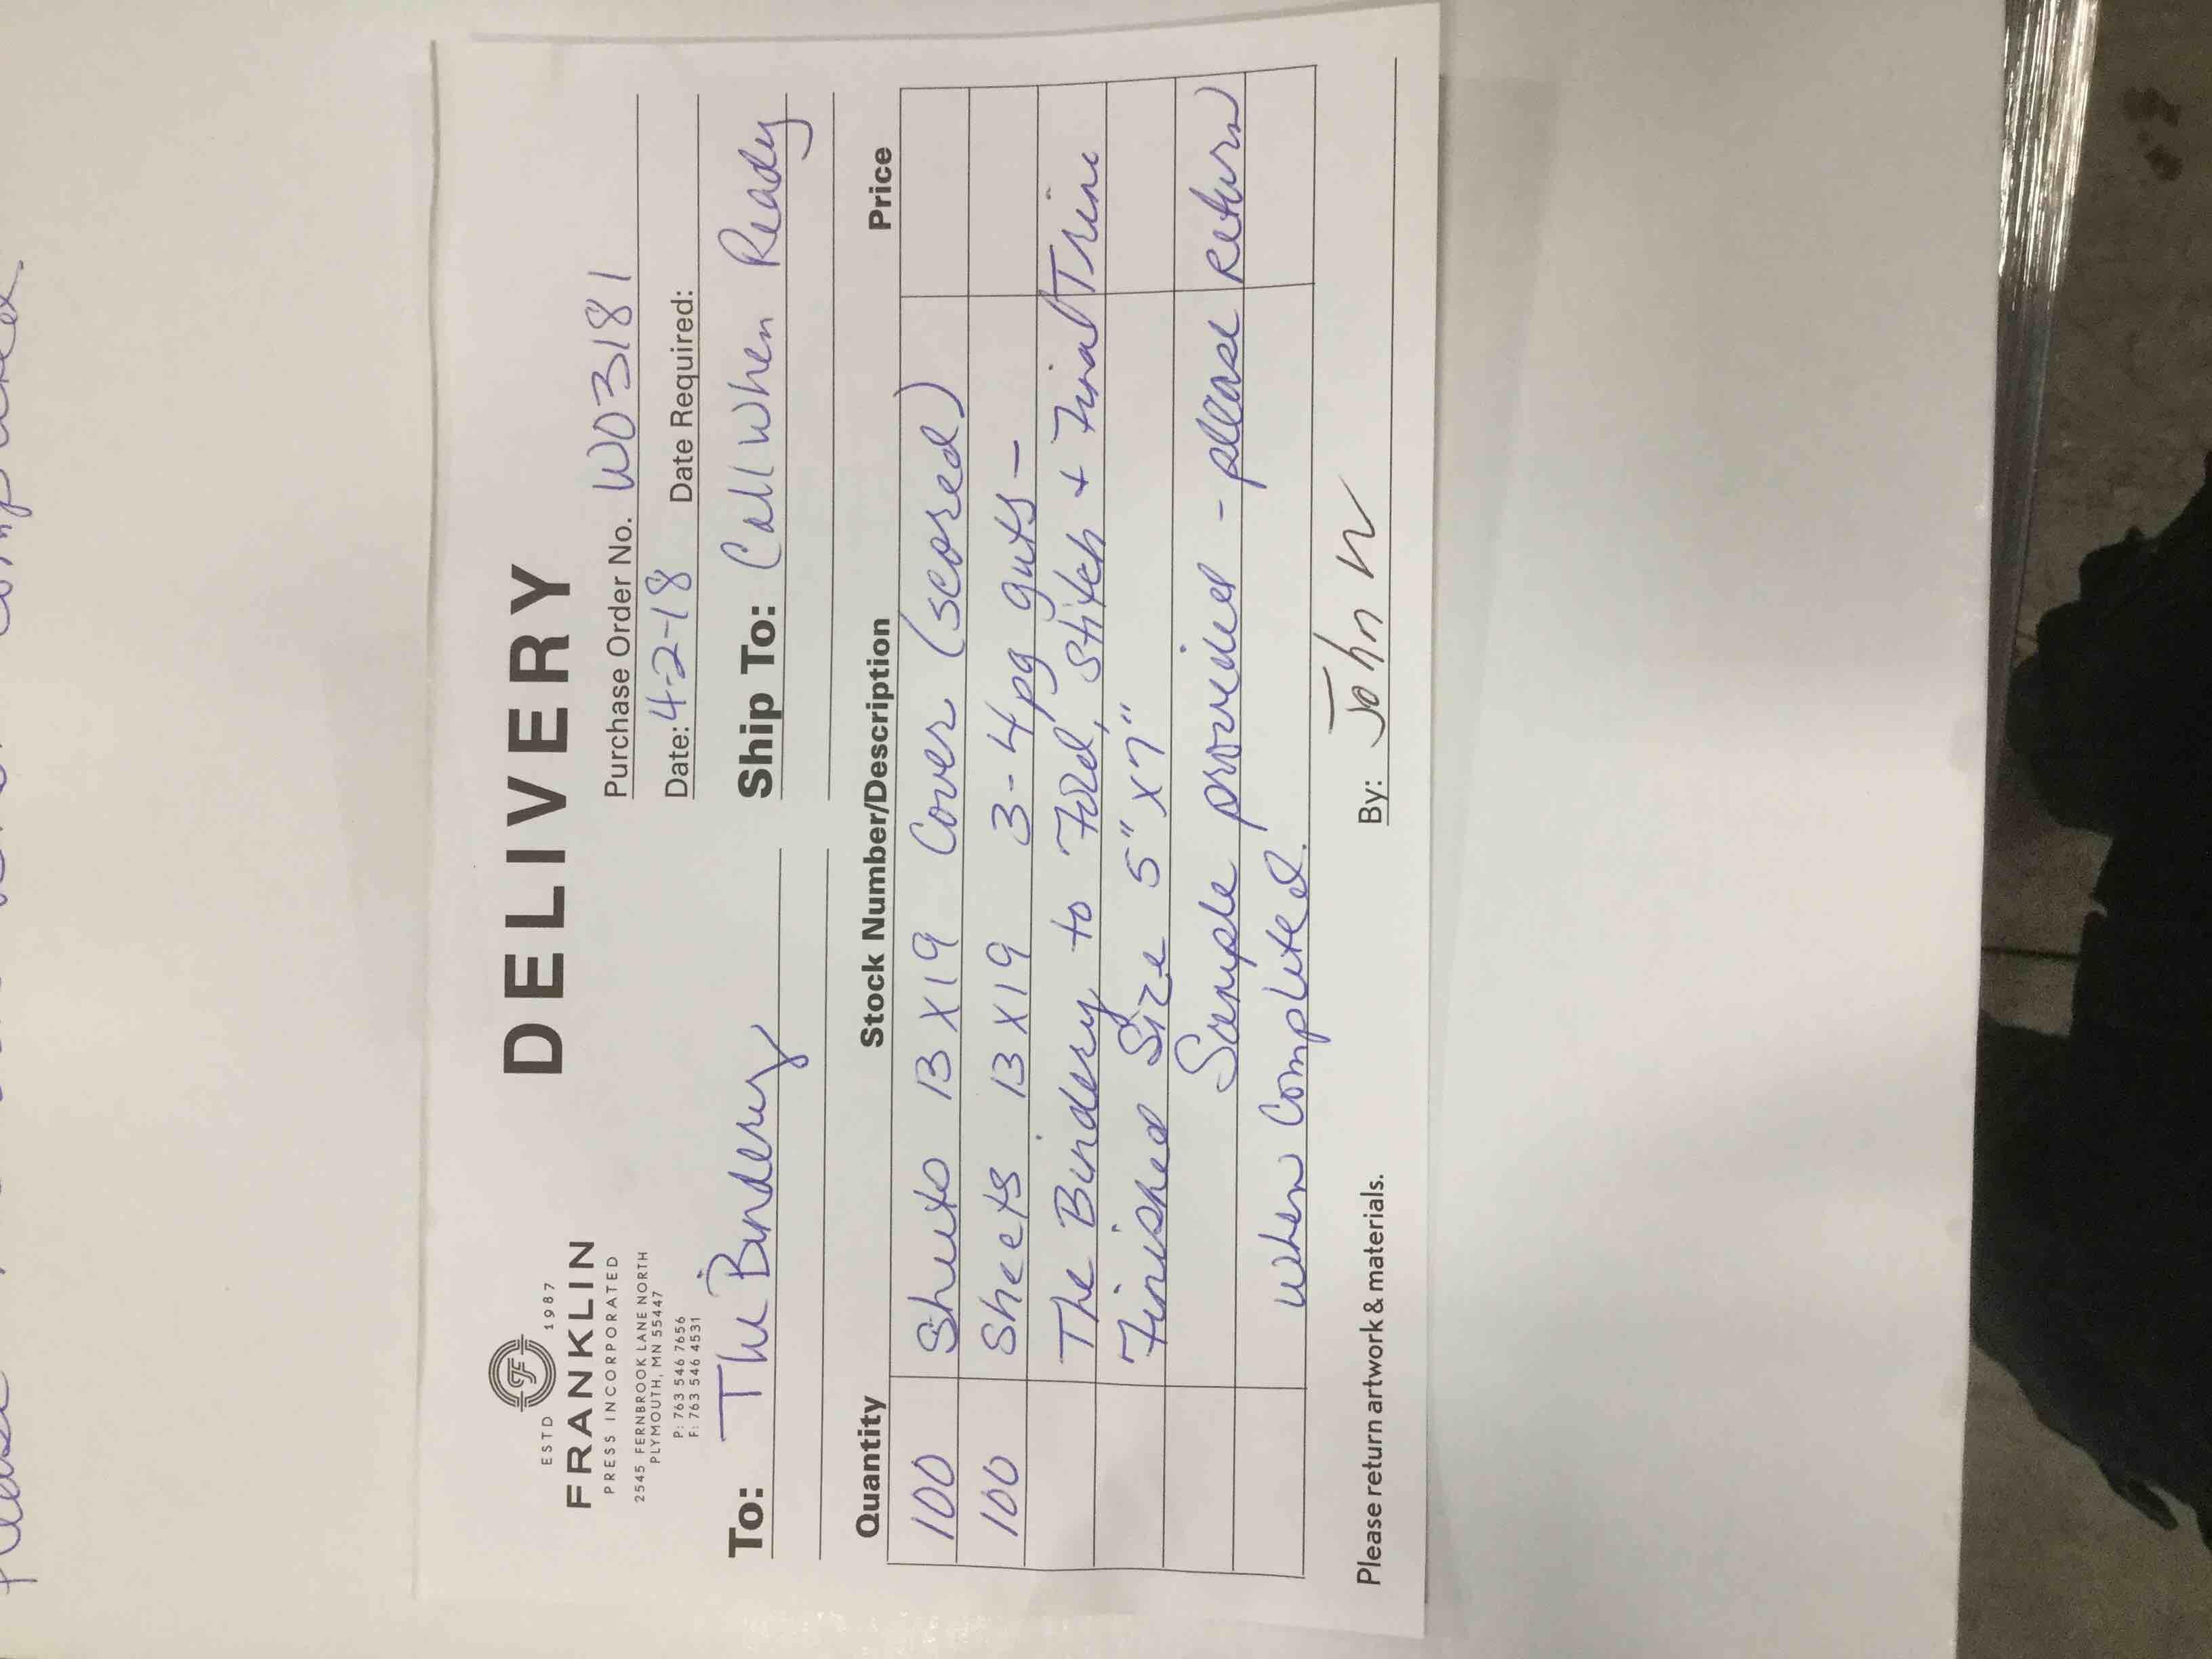 please
completed.
ESTD 1987
FRANKLIN
PRESS INCORPORATED
2545 FERNBROOK LANE NORTH
PLYMOUTH, MN 55447
P: 763 546 7656
F: 763 546 4531
DELIVERY
Purchase Order No. W03181
Date: 4-2-18 Date Required:
To: The Bindery
Ship To: Call When Ready
Quantity Stock Number/Description Price
100 Sheets 13 X 19 Cover (scored)
100 Sheets 13 X 19 3-4 pg guts -
The Bindery to Fold, Stitch + Final Trim
Finished Size 5" x 7"
Sample provided - please return
when completed.
Please return artwork & materials.
By: John N